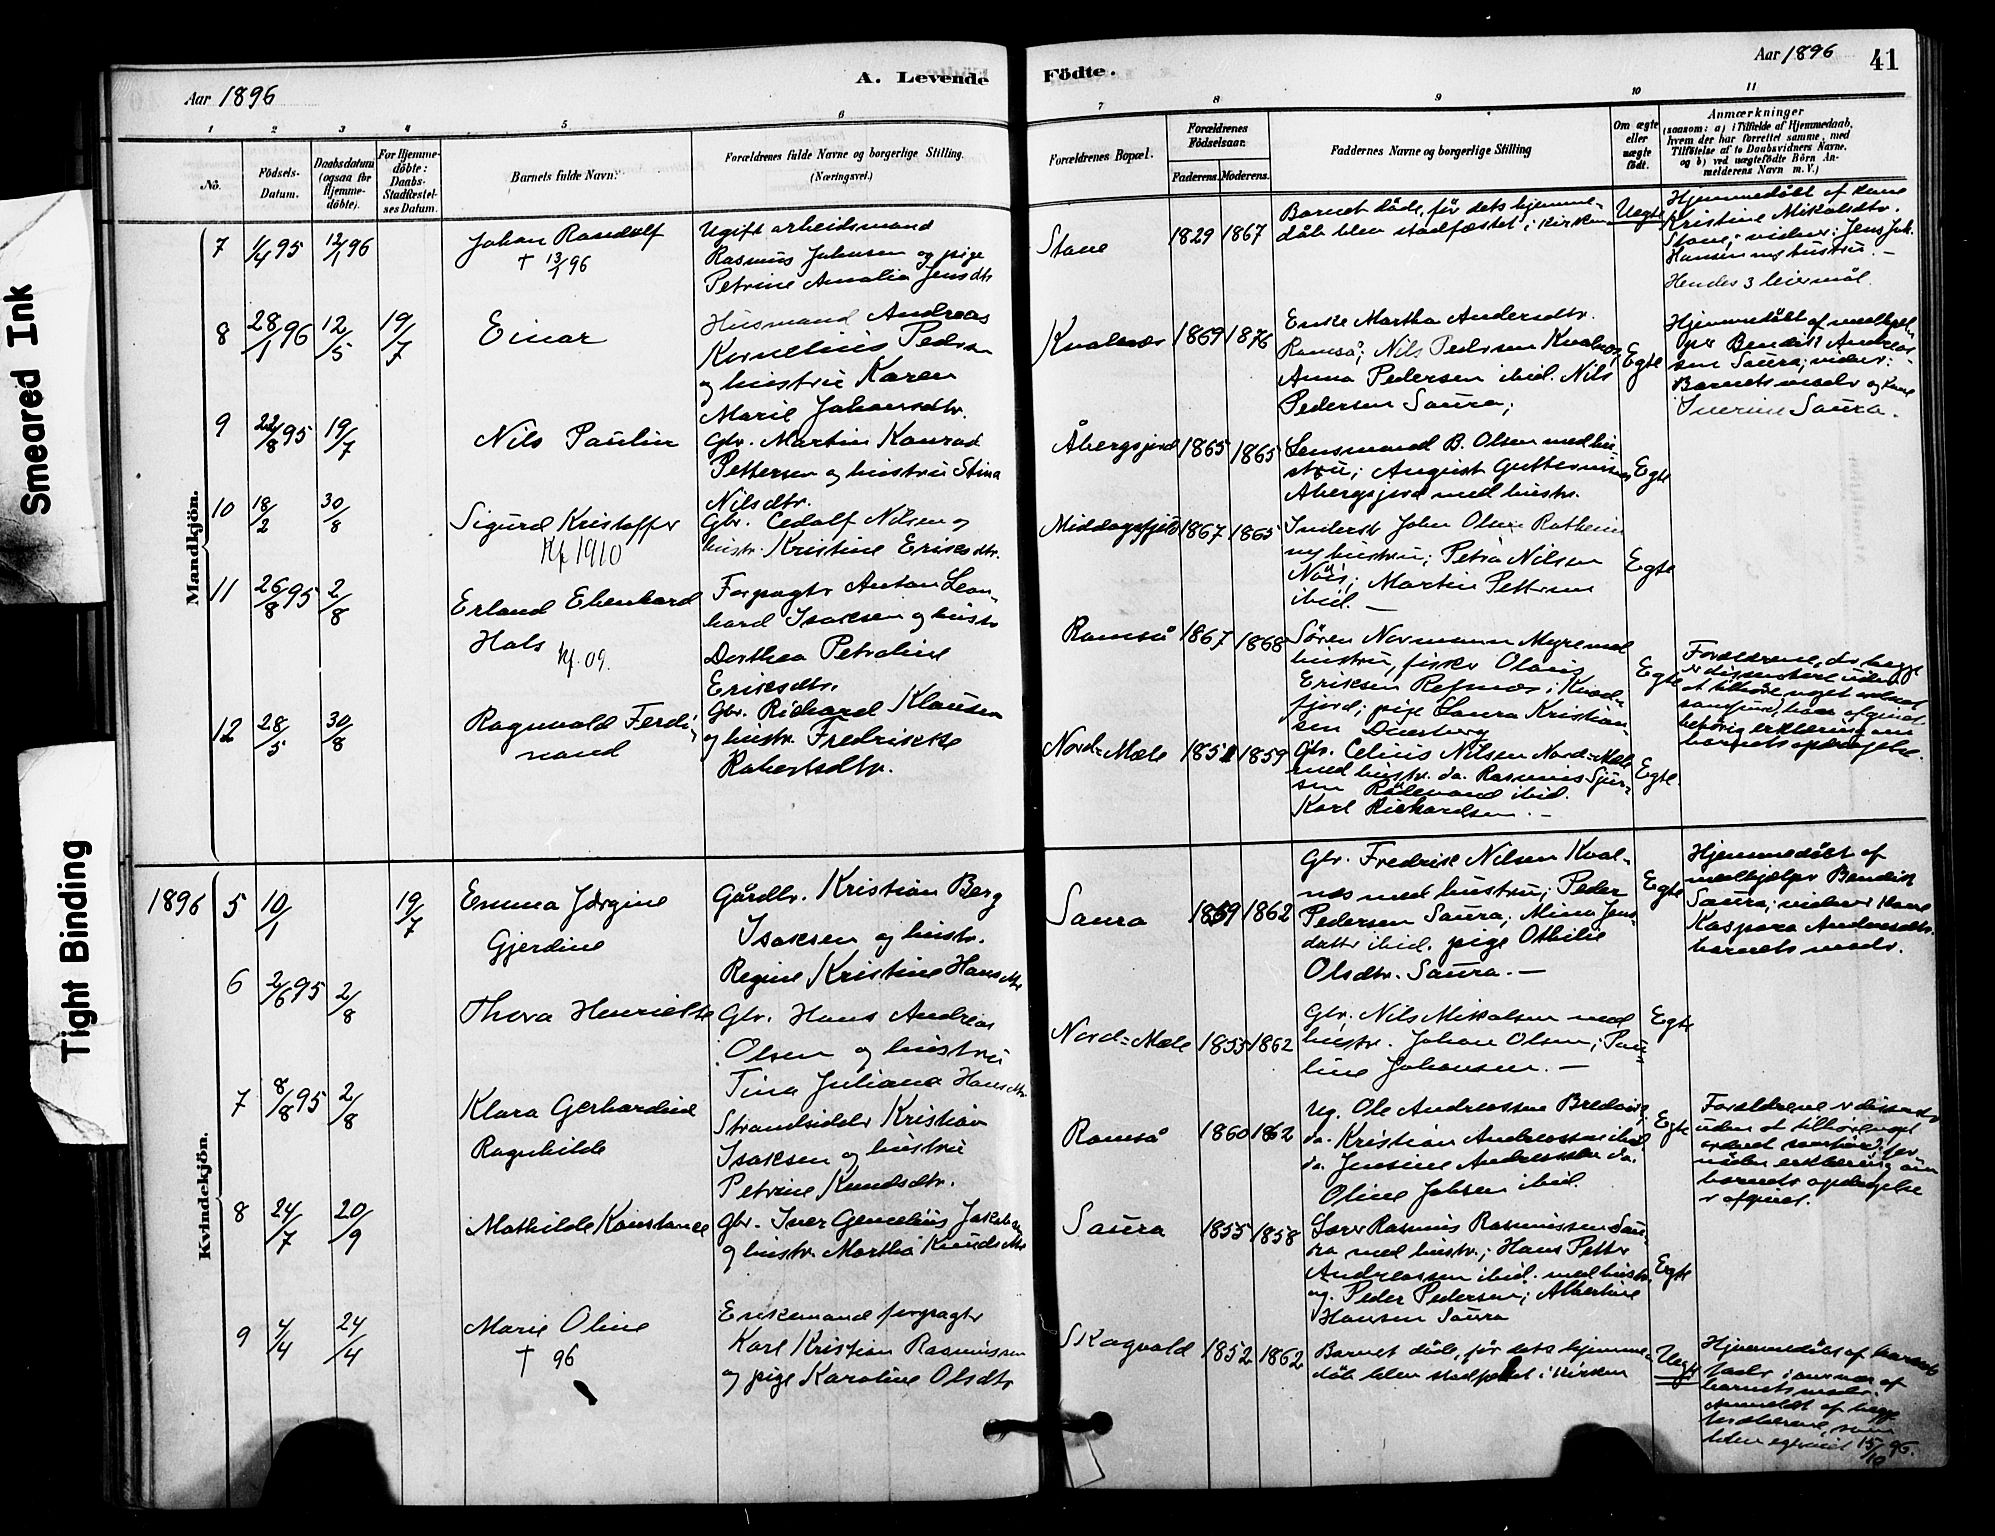 Smeared Ink
Tight Binding
A. Levende
Födte.
Aar 1896
Aar 1896
41
1 2 3 4 5 6
7 8 9 10 11
No.
Födsels-
Datum.
Daabsdatum
(ogsaa for
Hjemme-
döbte).
For Hjemme-
döbte:
Daabs-
Stadfæstel-
ses Datum.
Barnets fulde Navn.
Forældrenes fulde Navne og borgerlige Stilling.
(Næringsvei.)
Forældrenes Bopæl.
Forældrenes
Födselsaar.
Faderens. Moderens.
Faddernes Navne og borgerlige Stilling
Om ægte
eller
uægte
födt.
Anmærkninger
(saasom: a) i Tilfælde af Hjemmedaab,
hvem der har forrettet samme, med
Tilföielse af to Daabsvidners Navne,
og b) ved uægtefödte Börn An-
melderens Navn m. V.)
Mandkjön.
7 1/4 95 12/1 96
Johan Randolf
† 13/1 96
Ugift arbeidsmand
Rasmus Johnsen og pige
Petrine Amalia Jensdtr
Stave 1829 1867
Barnet døde, før dets hjemme-
dåb blev stadfæstet i kirken
Uegte
Hjemmedøbt af kone
Kristine Mikalsdtr.
Stave; vidner: Jens Joh.
Hansen og hustru. –
Hendes 3 leiermål.
8 28/1 96 12/5 19/7
Einar
Husmand Andreas
Kornelius Pedersen
og hustru Karen
Marie Johansdtr.
Kvalnæs 1869 1876
Enke Martha Andersdtr.
Ramså; Nils Pedersen Kvalnæs,
Anna Pedersen ibid. Nils
Pedersen Saura;
Egte
Hjemmedøbt af medhjæl-
per Bendik Andreas-
sen Saura; vidner:
Barnets moder og kone
Iverine Saura.
9 22/8 95 19/7
Nils Paulin
Gbr. Martin Konrad
Pettersen og hustru Stina
Nilsdtr.
Åbergsjord 1865 1865
Lensmand B. Olsen med hu-
stru; August Guttormsen
Åbergsjord med hustr.
Egte
10 18/2 30/8
Sigurd Kristoffer
Kf 1910
Gbr. Cedolf Nilsen og
hustr. Kristine Eriksdtr.
Middagsfjeld 1867 1865
Inderst John Olsen
og hustru; Petra Nilsen
Nöis; Martin Pettersen
ibid. –
Egte
11 26/8 95 2/8
Erland Ebenhard
Hals
Kf. 09.
Forpagter Anton Leon-
hard Isaksen og hustr
Dorthea Petroline
Eriksdtr.
Ramså 1867 1868
Søren Normann Myre med
hustru, fisker Olaus
Eriksen Refsnæs i Kvæd-
fjord; pige Laura Kristian-
sen
Egte
Forældrene, der begge
er dissentere uden
at tilhöre noget ordnet
samfund, har afgivet
behörig erklæring om
barnets opdragelse.
12 28/5 30/8
Ragnvald Ferdi-
nand
Gbr. Rickard Klausen
og hustr. Fredrikke
Robertsdtr.
Nord-Mæle 1851 1859
Gbr. Celius Nilsen Nord-Mæle
med hustr. do. Rasmus Sjur-
sen ibid.
Karl Rickardsen. –
Egte
Kvindekjön.
1896 5 10/1 19/7
Emma Jørgine
Gjerdine
Gårdbr. Kristian Berg
Isaksen og hustr.
Regine Kristine Hansdtr
Saura 1859 1862
Gbr. Fredrik Nilsen Kval-
næs med hustru; Peder
Pedersen Saura; Mina Jens-
datter ibid. pige Othilie
Olsdtr. Saura. –
Egte
Hjemmedöbt af
medhjælper Bendik
Saura; vidner kone
Kaspara Andersdtr.
barnets moder.
6 2/6 95 2/8
Thora Henriette
Gbr. Hans Andreas
Olsen og hustru
Tina Juliana Hansdtr
Nord-Mæle 1853 1862
Gbr. Nils Mikalsen med
hustr. Johan Olsen; Pau-
line Johansen. –
Egte
7 8/8 95 2/8
Klara Gerhardine
Ragnhilde
Strandsidder Kristian
Isaksen og hustru
Petrine Knudsdtr.
Ramså 1860 1862
Ug. Ole Andreassen
do. Kristian Andreassen ibid,
do. Jensine Andreassen do.
Oline Johsen ibid.
Egte
Forældrene er dissenter
uden at tilhöre noget
ordnet samfund; for-
nöden erklæring om
barnets opdragelse
er afgivet.
8 24/7 20/9
Mathilde Konstance
Gbr. Iver Jakobsen
og hustr. Martha Knudsdtr
Saura 1855 1858
Rasmus Rasmussen Sau-
ra med hustr.; Hans Petter
Andreassen ibid. med hustr.
ug. Peder Pedersen; Albertine
Hansen Saura
Egte
9 4/4 24/4
Marie Oline
† 96
Enkemand forpagter
Karl Kristian Rasmussen
og pige Karoline Olsdtr
Skogvold 1852 1862
Barnet döde, för dets hjemme-
dåb blev stadfæstet i kirken
Uegte
Hjemmedöbt af barnets
fader i nærvær af
barnets moder.
Anmeldt af begge
forældrene, som
15/10 96.